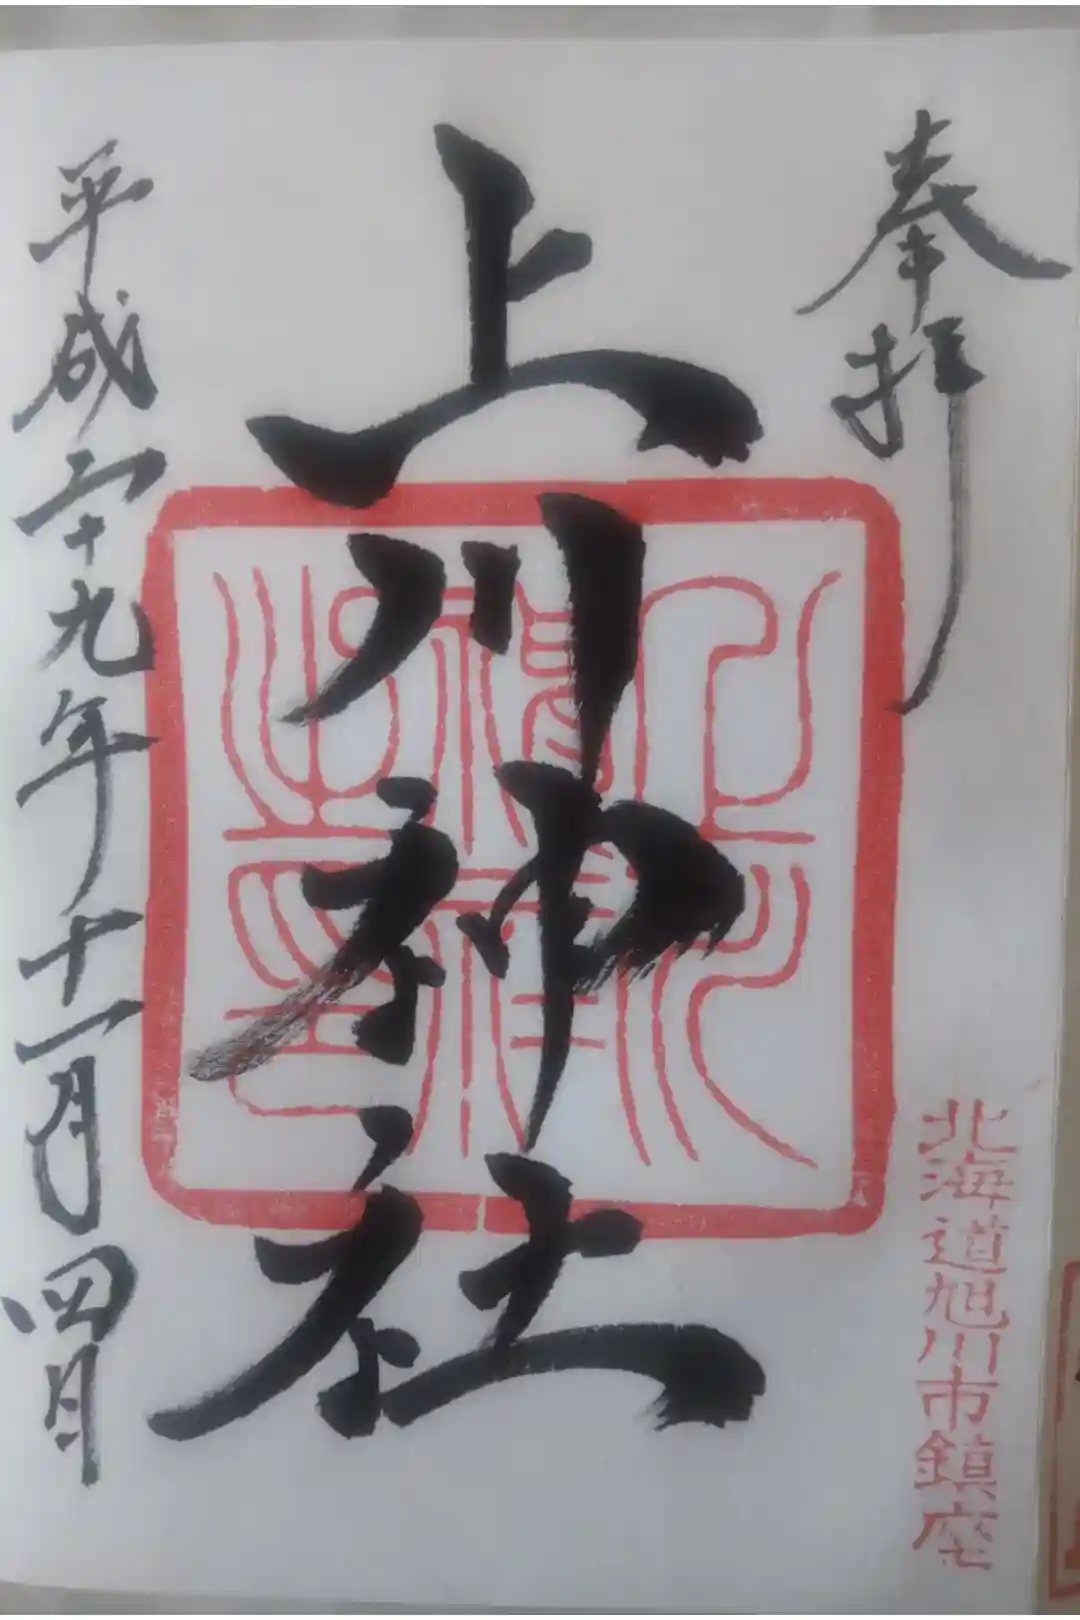 奉拝
北海道旭川市鎮座
上川神社
平成二十九年十一月四日